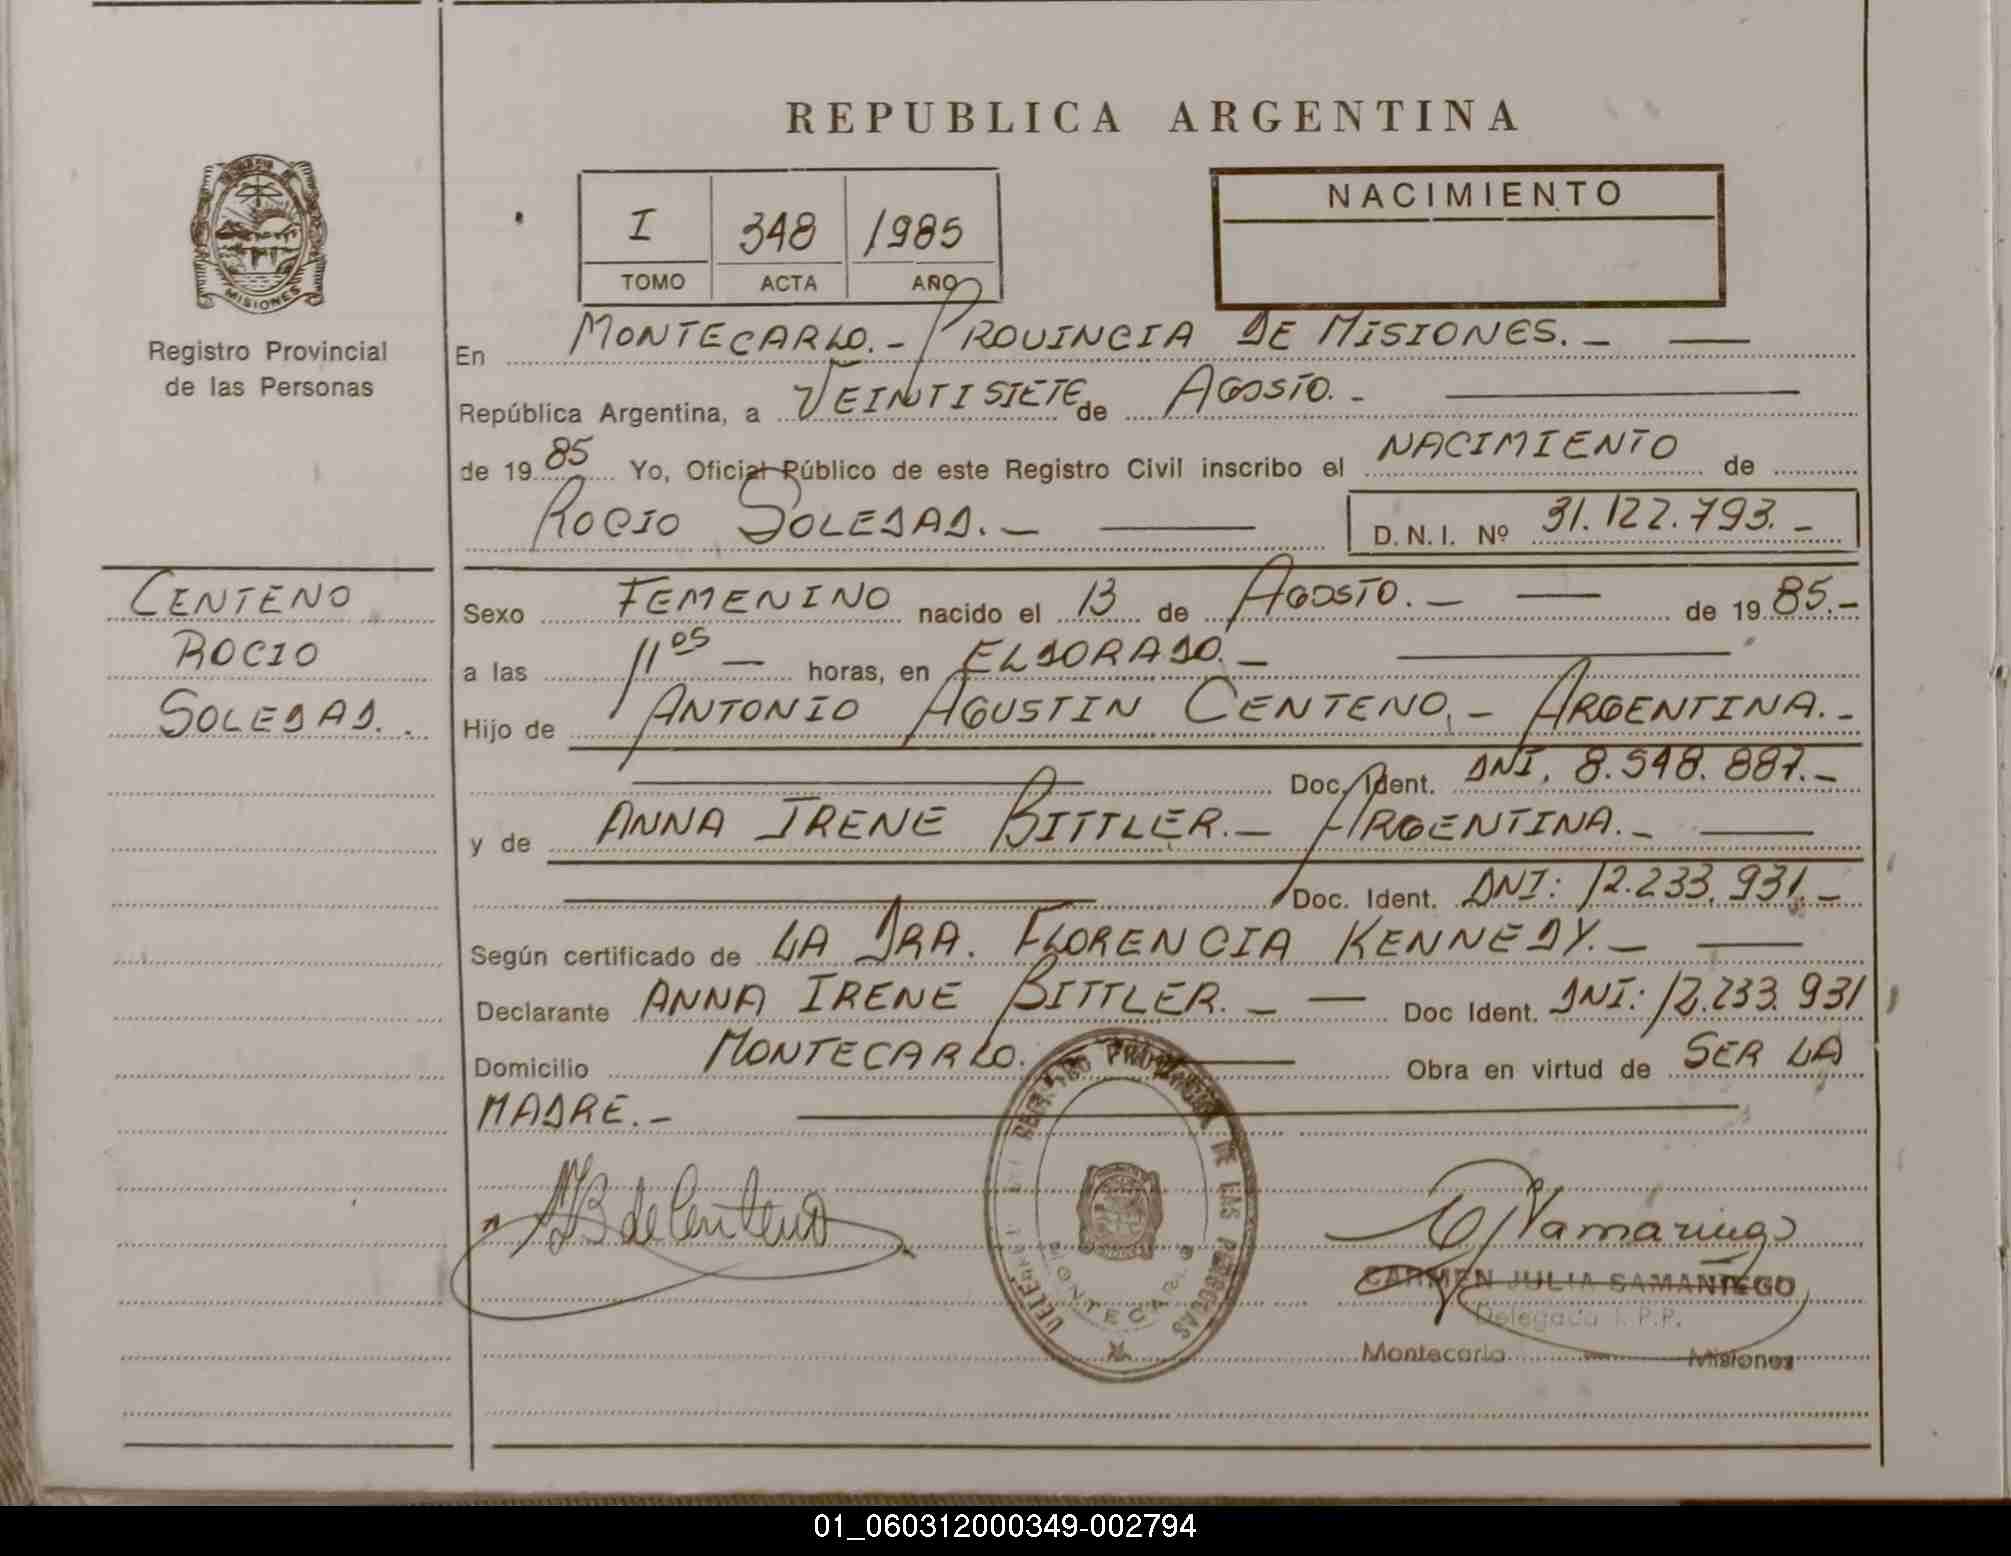 REPUBLICA ARGENTINA
MISIONES
Registro Provincial
de las Personas
I 348 1985
TOMO ACTA AÑO
NACIMIENTO
En MONTECARLO.- PROVINCIA DE MISIONES.-
República Argentina, a VEINTISIETE de AGOSTO.-
de 1985 Yo, Oficial Público de este Registro Civil inscribo el NACIMIENTO de
ROCIO SOLEDAD.- D.N.I. Nº 31.122.793.-
CENTENO
ROCIO
SOLEDAD.
Sexo FEMENINO nacido el 13 de AGOSTO.- de 1985.-
a las 11 05 - horas, en ELDORADO.-
Hijo de ANTONIO AGUSTIN CENTENO.- ARGENTINA.-
Doc. Ident. DNI. 8.548.887.-
y de ANNA IRENE BITTLER.- ARGENTINA.-
Doc. Ident. DNI: 12.233.931.-
Según certificado de LA DRA. FLORENCIA KENNEDY.-
Declarante ANNA IRENE BITTLER.- Doc Ident. DNI: 12.233.931
Domicilio MONTECARLO. Obra en virtud de SER LA
MADRE.-
REGISTRO PROVINCIAL DE LAS PERSONAS
MONTECARLO
de Centeno
CARMEN JULIA SAMANIEGO
Delegada I.P.P.
Montecarlo - Misiones
01_060312000349-002794